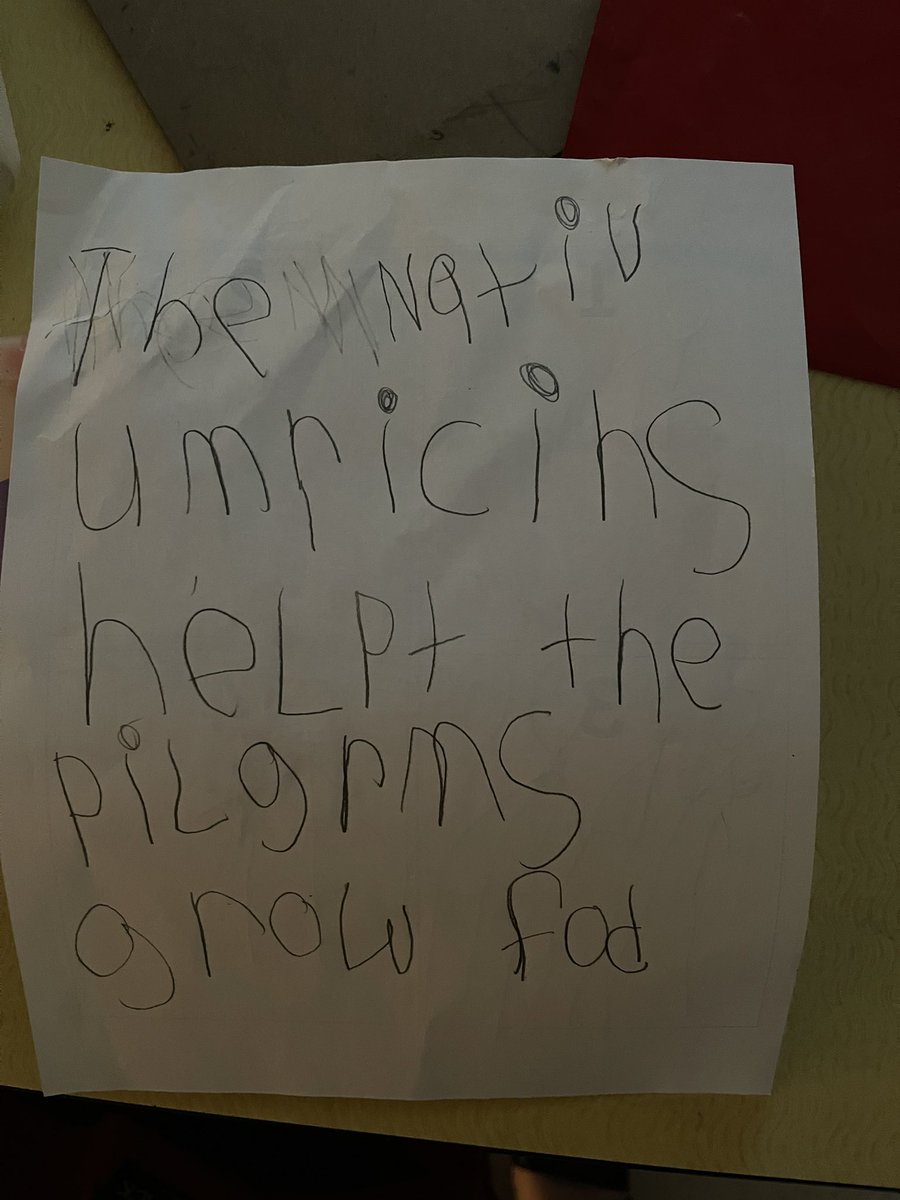 The Nativ
umricins
helpt the
pilgrms
grow fod